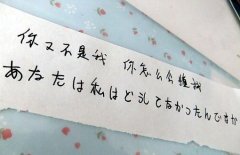 你又不是我 你怎么会懂我
あなたは私はどしてなかったんですか